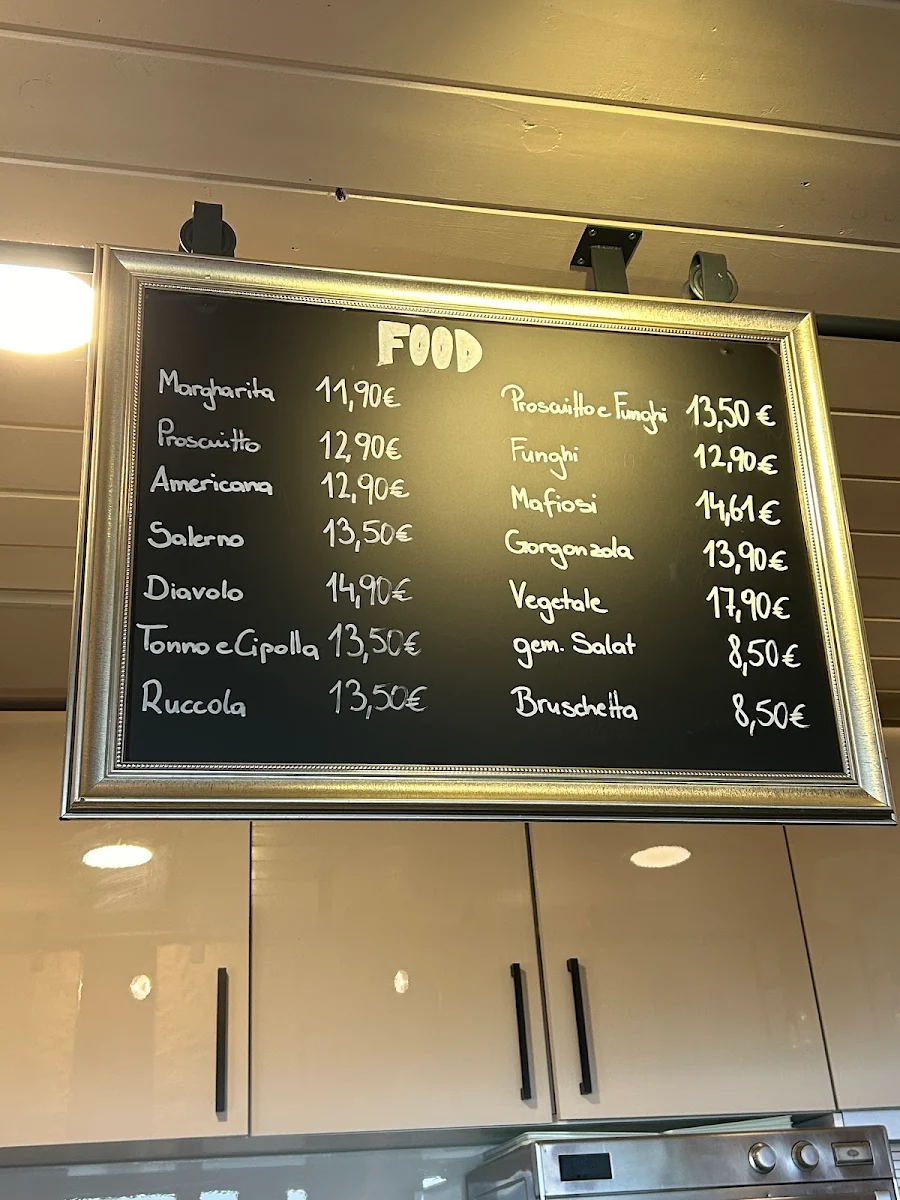 FOOD
Margharita 11,90€
Proscuitto 12,90€
Americana 12,90€
Salerno 13,50€
Diavolo 14,90€
Tonno e Cipolla 13,50€
Ruccola 13,50€
Proscuitto e Funghi 13,50€
Funghi 12,90€
Mafiosi 14,61€
Gorgonzola 13,90€
Vegetale 17,90€
gem. Salat 8,50€
Bruschetta 8,50€